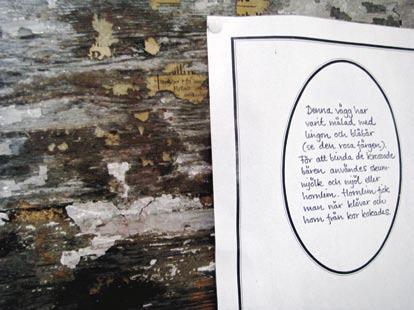 Denna vägg har
varit målad med
lingon och blåbär
(se den rosa färgen).
För att binda de krossade
bären användes skum-
mjölk och mjöl eller
hornlim. Hornlim fick
man när klövar och
horn från kor kokades.